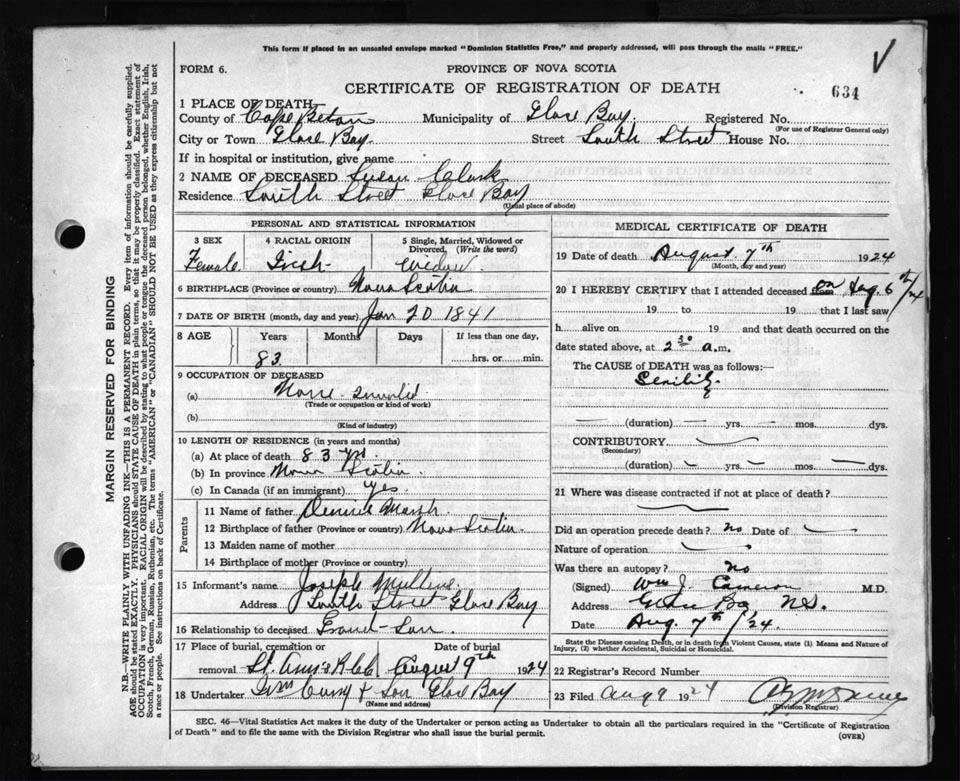 This form if placed in an unsealed envelope marked "Dominion Statistics Free," and properly addressed, will pass through the mails "FREE."
FORM 6.
PROVINCE OF NOVA SCOTIA
CERTIFICATE OF REGISTRATION OF DEATH
634
1 PLACE OF DEATH
County of Cape Breton Municipality of Glace Bay Registered No.
(For use of Registrar General only)
City or Town Glace Bay. Street South Street House No.
If in hospital or institution, give name
2 NAME OF DECEASED Susan Clark
Residence South Street Glace Bay
(Usual place of abode)
PERSONAL AND STATISTICAL INFORMATION
3 SEX 4 RACIAL ORIGIN 5 Single, Married, Widowed or Divorced, (Write the word)
Female Irish widow
6 BIRTHPLACE (Province or country) Nova Scotia
7 DATE OF BIRTH (month, day and year) Jan 20 1841
8 AGE Years Months Days If less than one day,
83 hrs. or min.
9 OCCUPATION OF DECEASED
(a) None Invalid
(Trade or occupation or kind of work)
(b)
(Kind of industry)
10 LENGTH OF RESIDENCE (in years and months)
(a) At place of death 83 yrs
(b) In province Nova Scotia.
(c) In Canada (if an immigrant) yes
Parents
11 Name of father Dennis Marsh
12 Birthplace of father (Province or country) Nova Scotia
13 Maiden name of mother
14 Birthplace of mother (Province or country)
15 Informant's name Joseph Mullins.
Address South Street Glace Bay
16 Relationship to deceased Grand-Son
17 Place of burial, cremation or removal St. Ann's Date of burial August 9th 1924
18 Undertaker Curry & Son Glace Bay
(Name and address)
MEDICAL CERTIFICATE OF DEATH
19 Date of death August 7th 1924
(Month, day and year)
20 I HEREBY CERTIFY that I attended deceased from on Aug. 6th/24
19 to 19 that I last saw
h alive on 19 and that death occurred on
date stated above, at 2 30 a.m.
The CAUSE of DEATH was as follows:—
Senility.
(duration) yrs. mos. dys.
CONTRIBUTORY
(Secondary)
(duration) yrs. mos. dys.
21 Where was disease contracted if not at place of death?
Did an operation precede death? no Date of
Nature of operation
Was there an autopsy? no
(Signed) Wm J. Cameron M.D.
Address Glace Bay NS.
Date Aug. 7th/24.
State the Disease causing Death, or in death from Violent Causes, state (1) Means and Nature of Injury, (2) whether Accidental, Suicidal or Homicidal.
22 Registrar's Record Number
23 Filed Aug 9 1924
(Division Registrar)
SEC. 46—Vital Statistics Act makes it the duty of the Undertaker or person acting as Undertaker to obtain all the particulars required in the "Certificate of Registration
of Death" and to file the same with the Division Registrar who shall issue the burial permit.
(OVER)
MARGIN RESERVED FOR BINDING
N.B.—WRITE PLAINLY WITH UNFADING INK—THIS IS A PERMANENT RECORD. Every item of information should be carefully supplied.
AGE should be stated EXACTLY. PHYSICIANS should STATE CAUSE OF DEATH in plain terms, so that it may be properly classified. Exact statement of
OCCUPATION is very important. RACIAL ORIGIN will be described by stating to what people or tongue the deceased person belonged, whether English, Irish,
Scotch, French, German, Russian, Ruthenian, etc. The terms "AMERICAN" or "CANADIAN" SHOULD NOT BE USED as they express citizenship but not
a race or people. See instructions on back of Certificate.